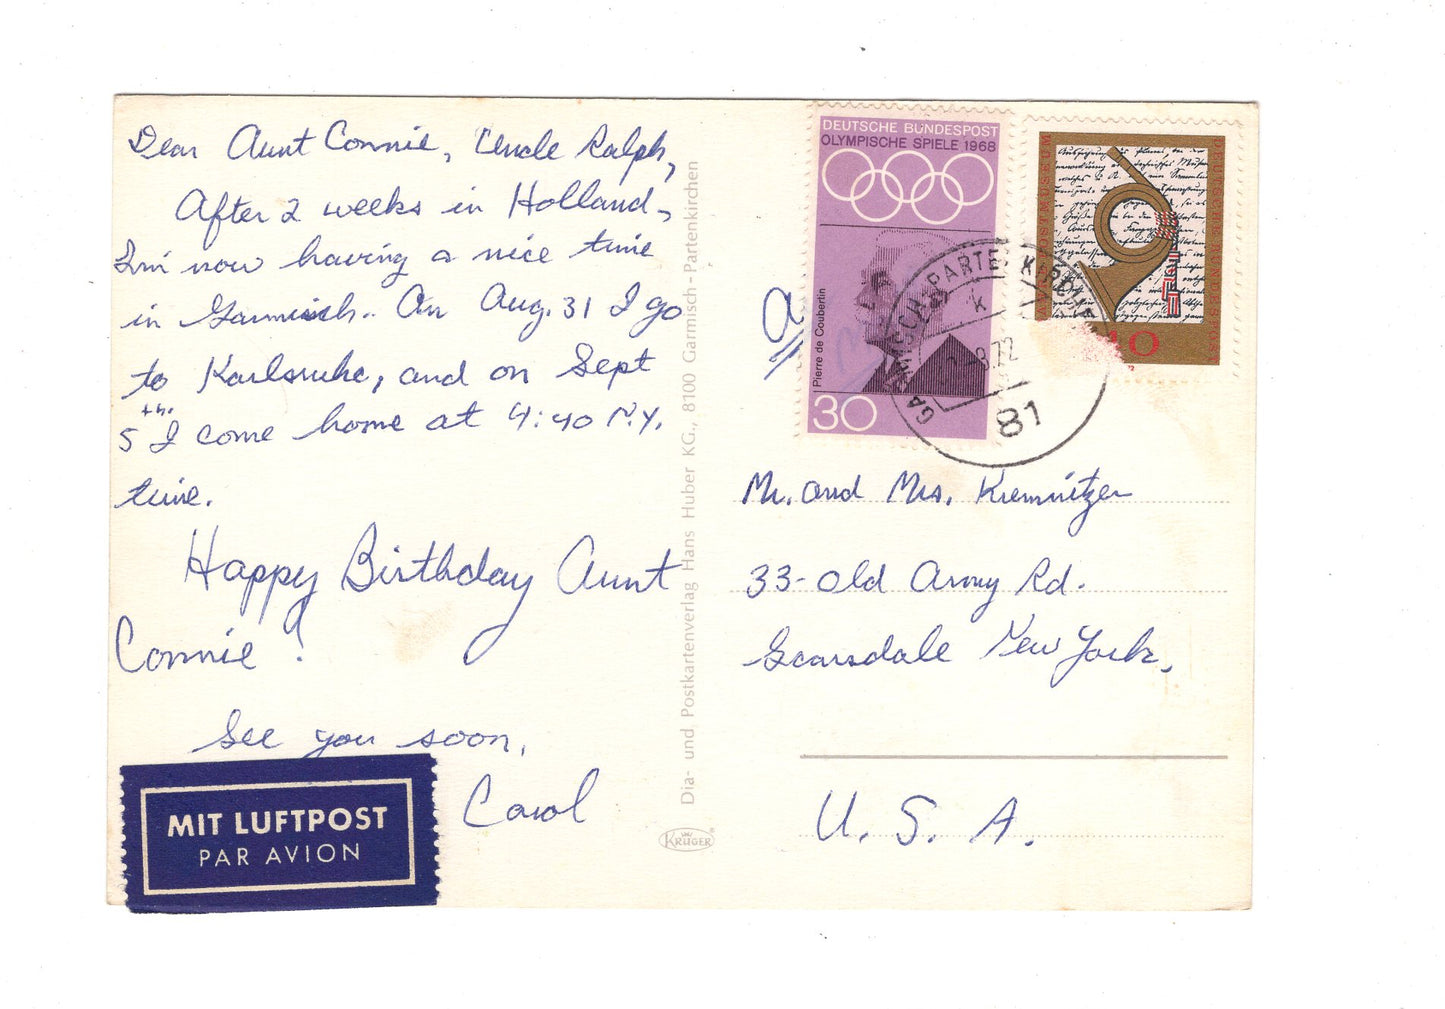 Dear Aunt Connie, Uncle Ralph,
After 2 weeks in Holland,
I'm now having a nice time
in Garmisch. On Aug. 31 I go
to Karlsruhe, and on Sept
5th. I come home at 4:40 N.Y.
time.
Happy Birthday Aunt
Connie!
See you soon,
Carol
MIT LUFTPOST
PAR AVION
Dia- und Postkartenverlag Hans Huber KG., 8100 Garmisch-Partenkirchen
KRÜGER
DEUTSCHE BUNDESPOST
OLYMPISCHE SPIELE 1968
Pierre de Coubertin
30
POSTMUSEUM
GARMISCH-PARTENKIRCHEN
k
8.72
81
Mr. and Mrs. Kremnitzer
33- Old Army Rd.
Scarsdale New York,
U. S. A.